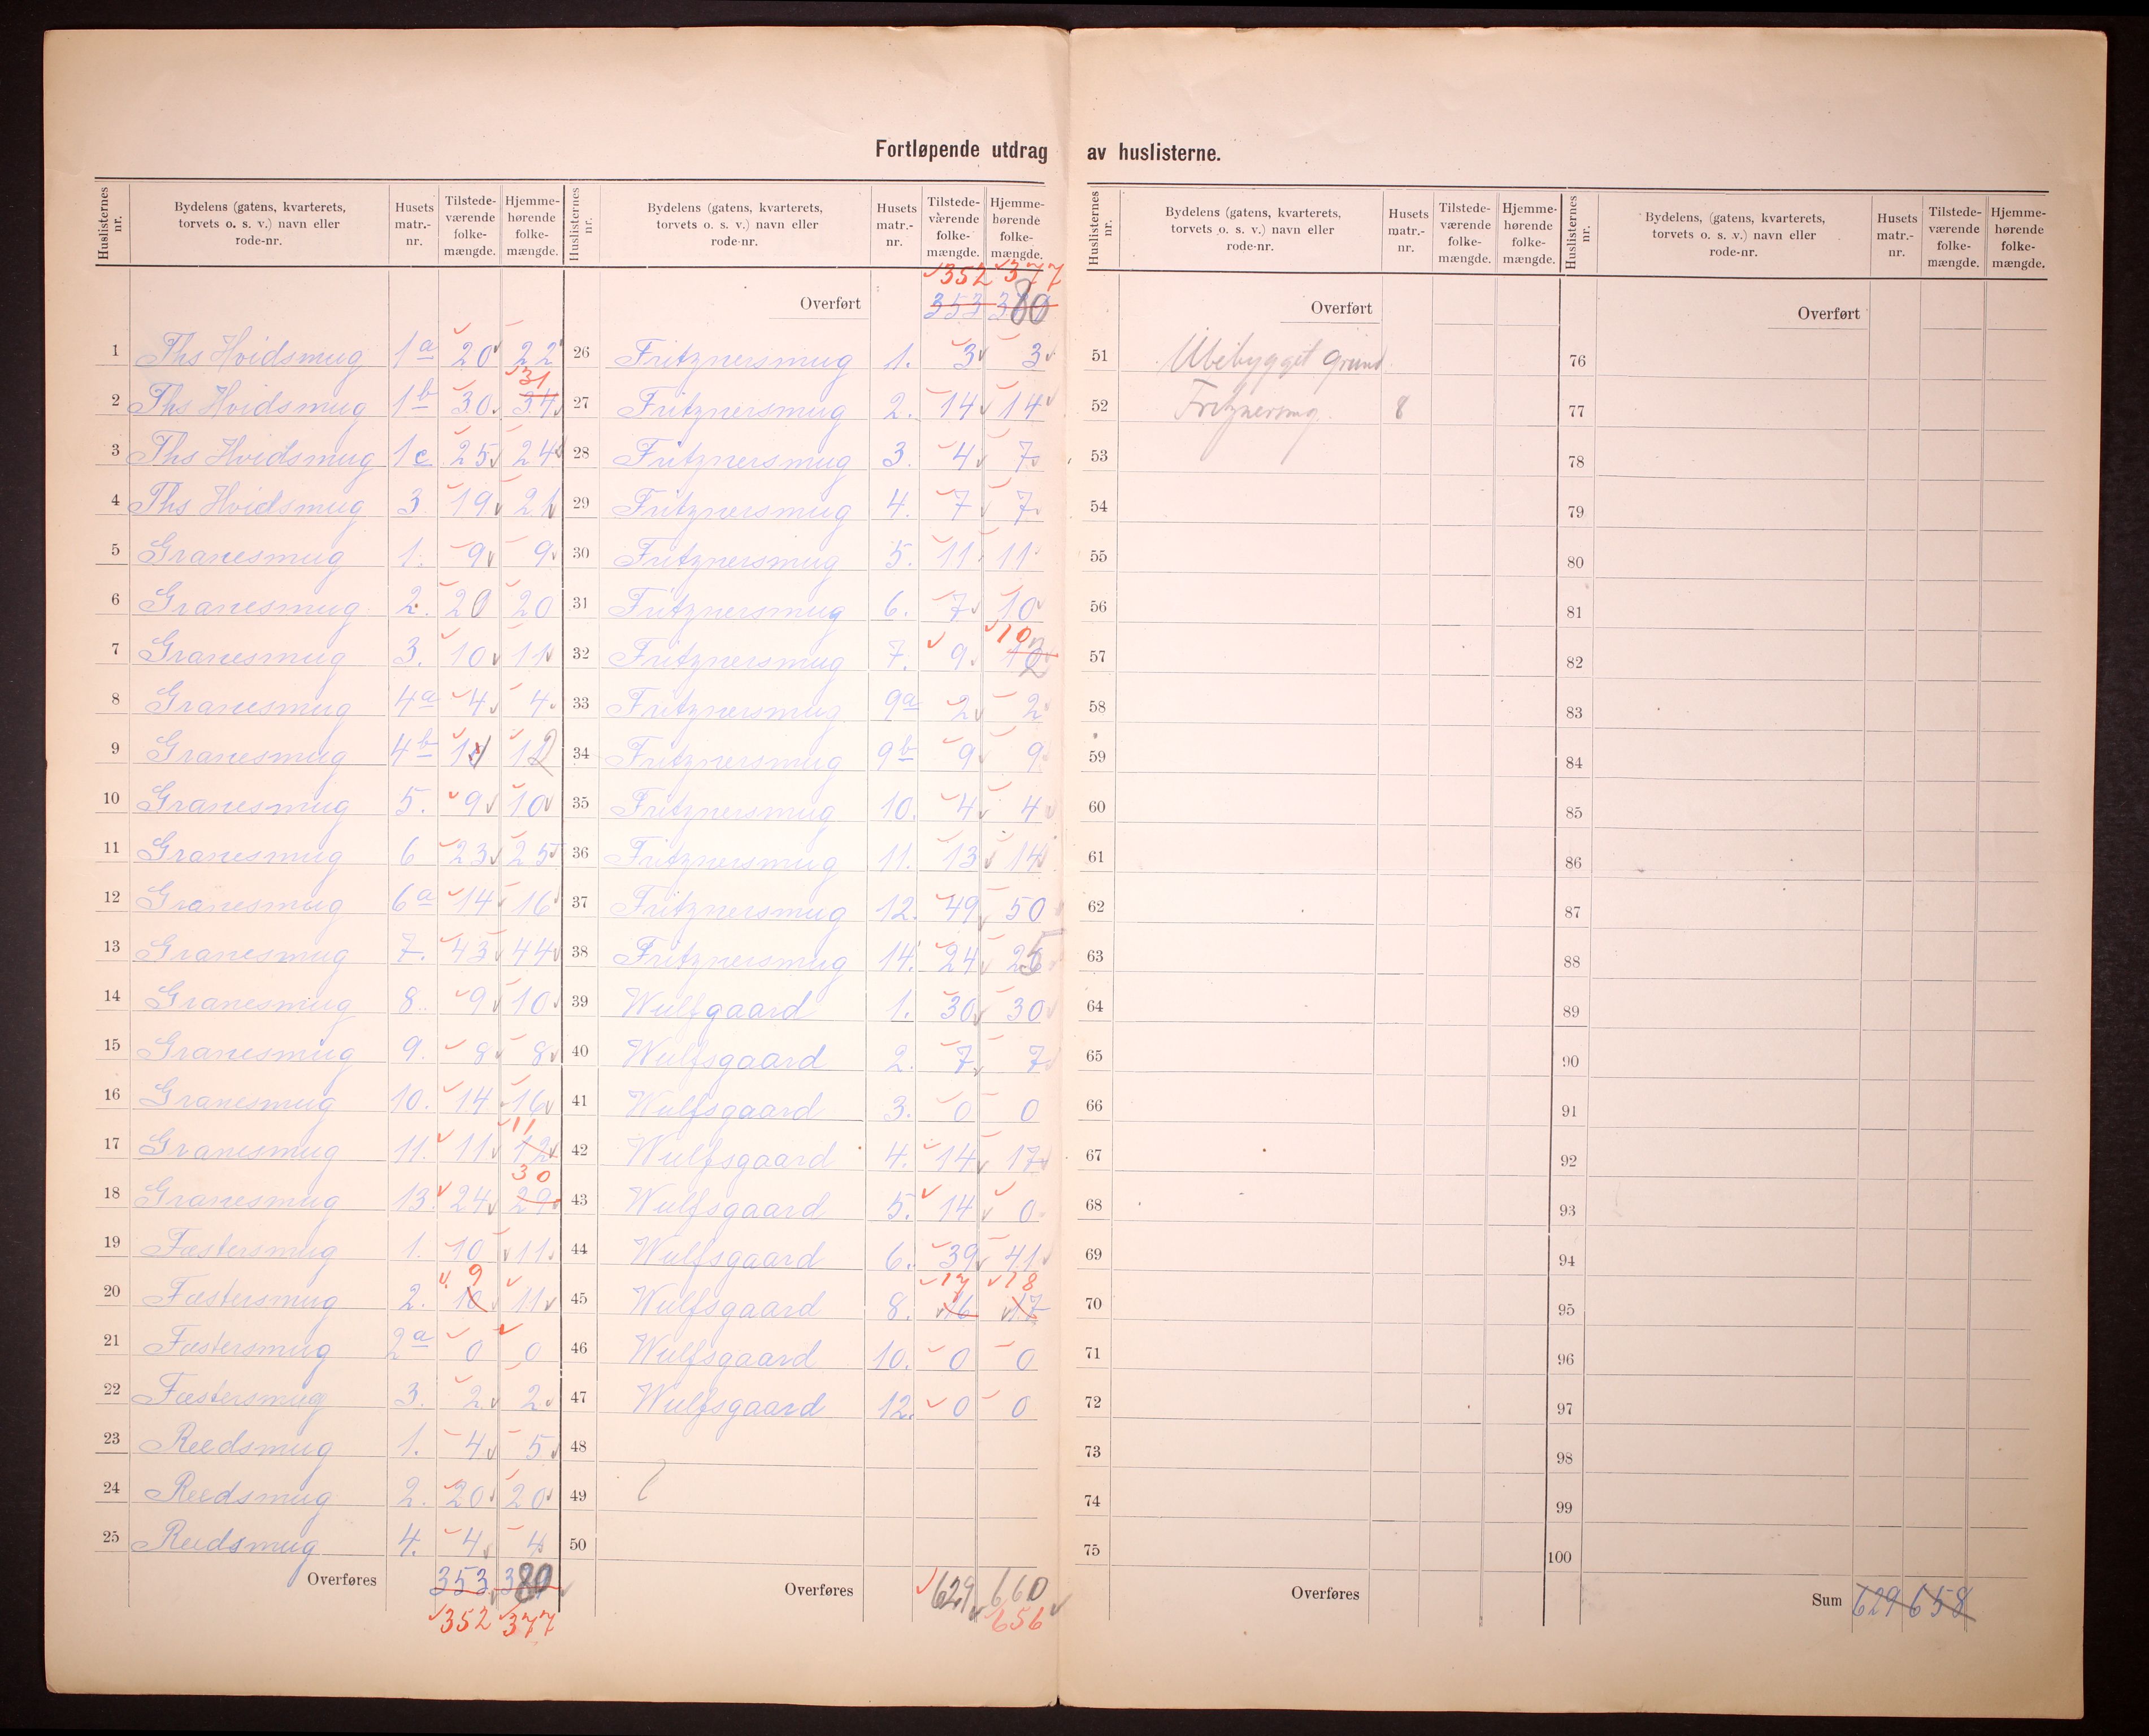 Fortløpende utdrag av huslisterne.
Huslisternes nr. | Bydelens (gatens, kvarterets, torvets o. s. v.) navn eller rode-nr. | Husets matr.-nr. | Tilstede-værende folke-mængde. | Hjemme-hørende folke-mængde.
1 Ths Hvidsmug 1a 20 22
2 Ths Hvidsmug 1b 30 34 31
3 Ths Hvidsmug 1c 25 24
4 Ths Hvidsmug 3 19 21
5 Granesmug 1. 9 9
6 Granesmug 2. 20 20
7 Granesmug 3. 10 11
8 Granesmug 4a 4 4
9 Granesmug 4b 11 12
10 Granesmug 5. 9 10
11 Granesmug 6 23 25
12 Granesmug 6a 14 16
13 Granesmug 7. 43 44
14 Granesmug 8. 9 10
15 Granesmug 9. 8 8
16 Granesmug 10. 14 16
17 Granesmug 11. 11 12 11
18 Granesmug 13. 24 29 30
19 Fæstersmug 1. 10 11
20 Fæstersmug 2. 10 9 11
21 Fæstersmug 2a 0 0
22 Fæstersmug 3. 2 2
23 Reedsmug 1. 4 5
24 Reedsmug 2. 20 20
25 Reedsmug 4. 4 4
Overføres 353 380
352 377
Huslisternes nr. | Bydelens (gatens, kvarterets, torvets o. s. v.) navn eller rode-nr. | Husets matr.-nr. | Tilstede-værende folke-mængde. | Hjemme-hørende folke-mængde.
352 377
Overført 353 380
26 Fritznersmug 1. 3 3
27 Fritznersmug 2. 14 14
28 Fritznersmug 3. 4 7
29 Fritznersmug 4. 7 7
30 Fritznersmug 5. 11 11
31 Fritznersmug 6. 7 10
32 Fritznersmug 7. 9 12 10
33 Fritznersmug 9a 2 2
34 Fritznersmug 9b 9 9
35 Fritznersmug 10. 4 4
36 Fritznersmug 11. 13 14
37 Fritznersmug 12. 49 50
38 Fritznersmug 14. 24 25
39 Wulfgaard 1. 30 30
40 Wulfsgaard 2. 7 7
41 Wulfsgaard 3. 0 0
42 Wulfsgaard 4. 14 17
43 Wulfsgaard 5. 14 0
44 Wulfsgaard 6. 39 41
45 Wulfsgaard 8. 16 17 17 18
46 Wulfsgaard 10. 0 0
47 Wulfsgaard 12. 0 0
48
49
50
Overføres 629 660
656
Huslisternes nr. | Bydelens (gatens, kvarterets, torvets o. s. v.) navn eller rode-nr. | Husets matr.-nr. | Tilstede-værende folke-mængde. | Hjemme-hørende folke-mængde.
Overført
51 Ubebygget grund
52 Fritznersmug. 8
53
54
55
56
57
58
59
60
61
62
63
64
65
66
67
68
69
70
71
72
73
74
75
Overføres
Huslisternes nr. | Bydelens, (gatens, kvarterets, torvets o. s. v.) navn eller rode-nr. | Husets matr.-nr. | Tilstede-værende folke-mængde. | Hjemme-hørende folke-mængde.
Overført
76
77
78
79
80
81
82
83
84
85
86
87
88
89
90
91
92
93
94
95
96
97
98
99
100
Sum 629 658